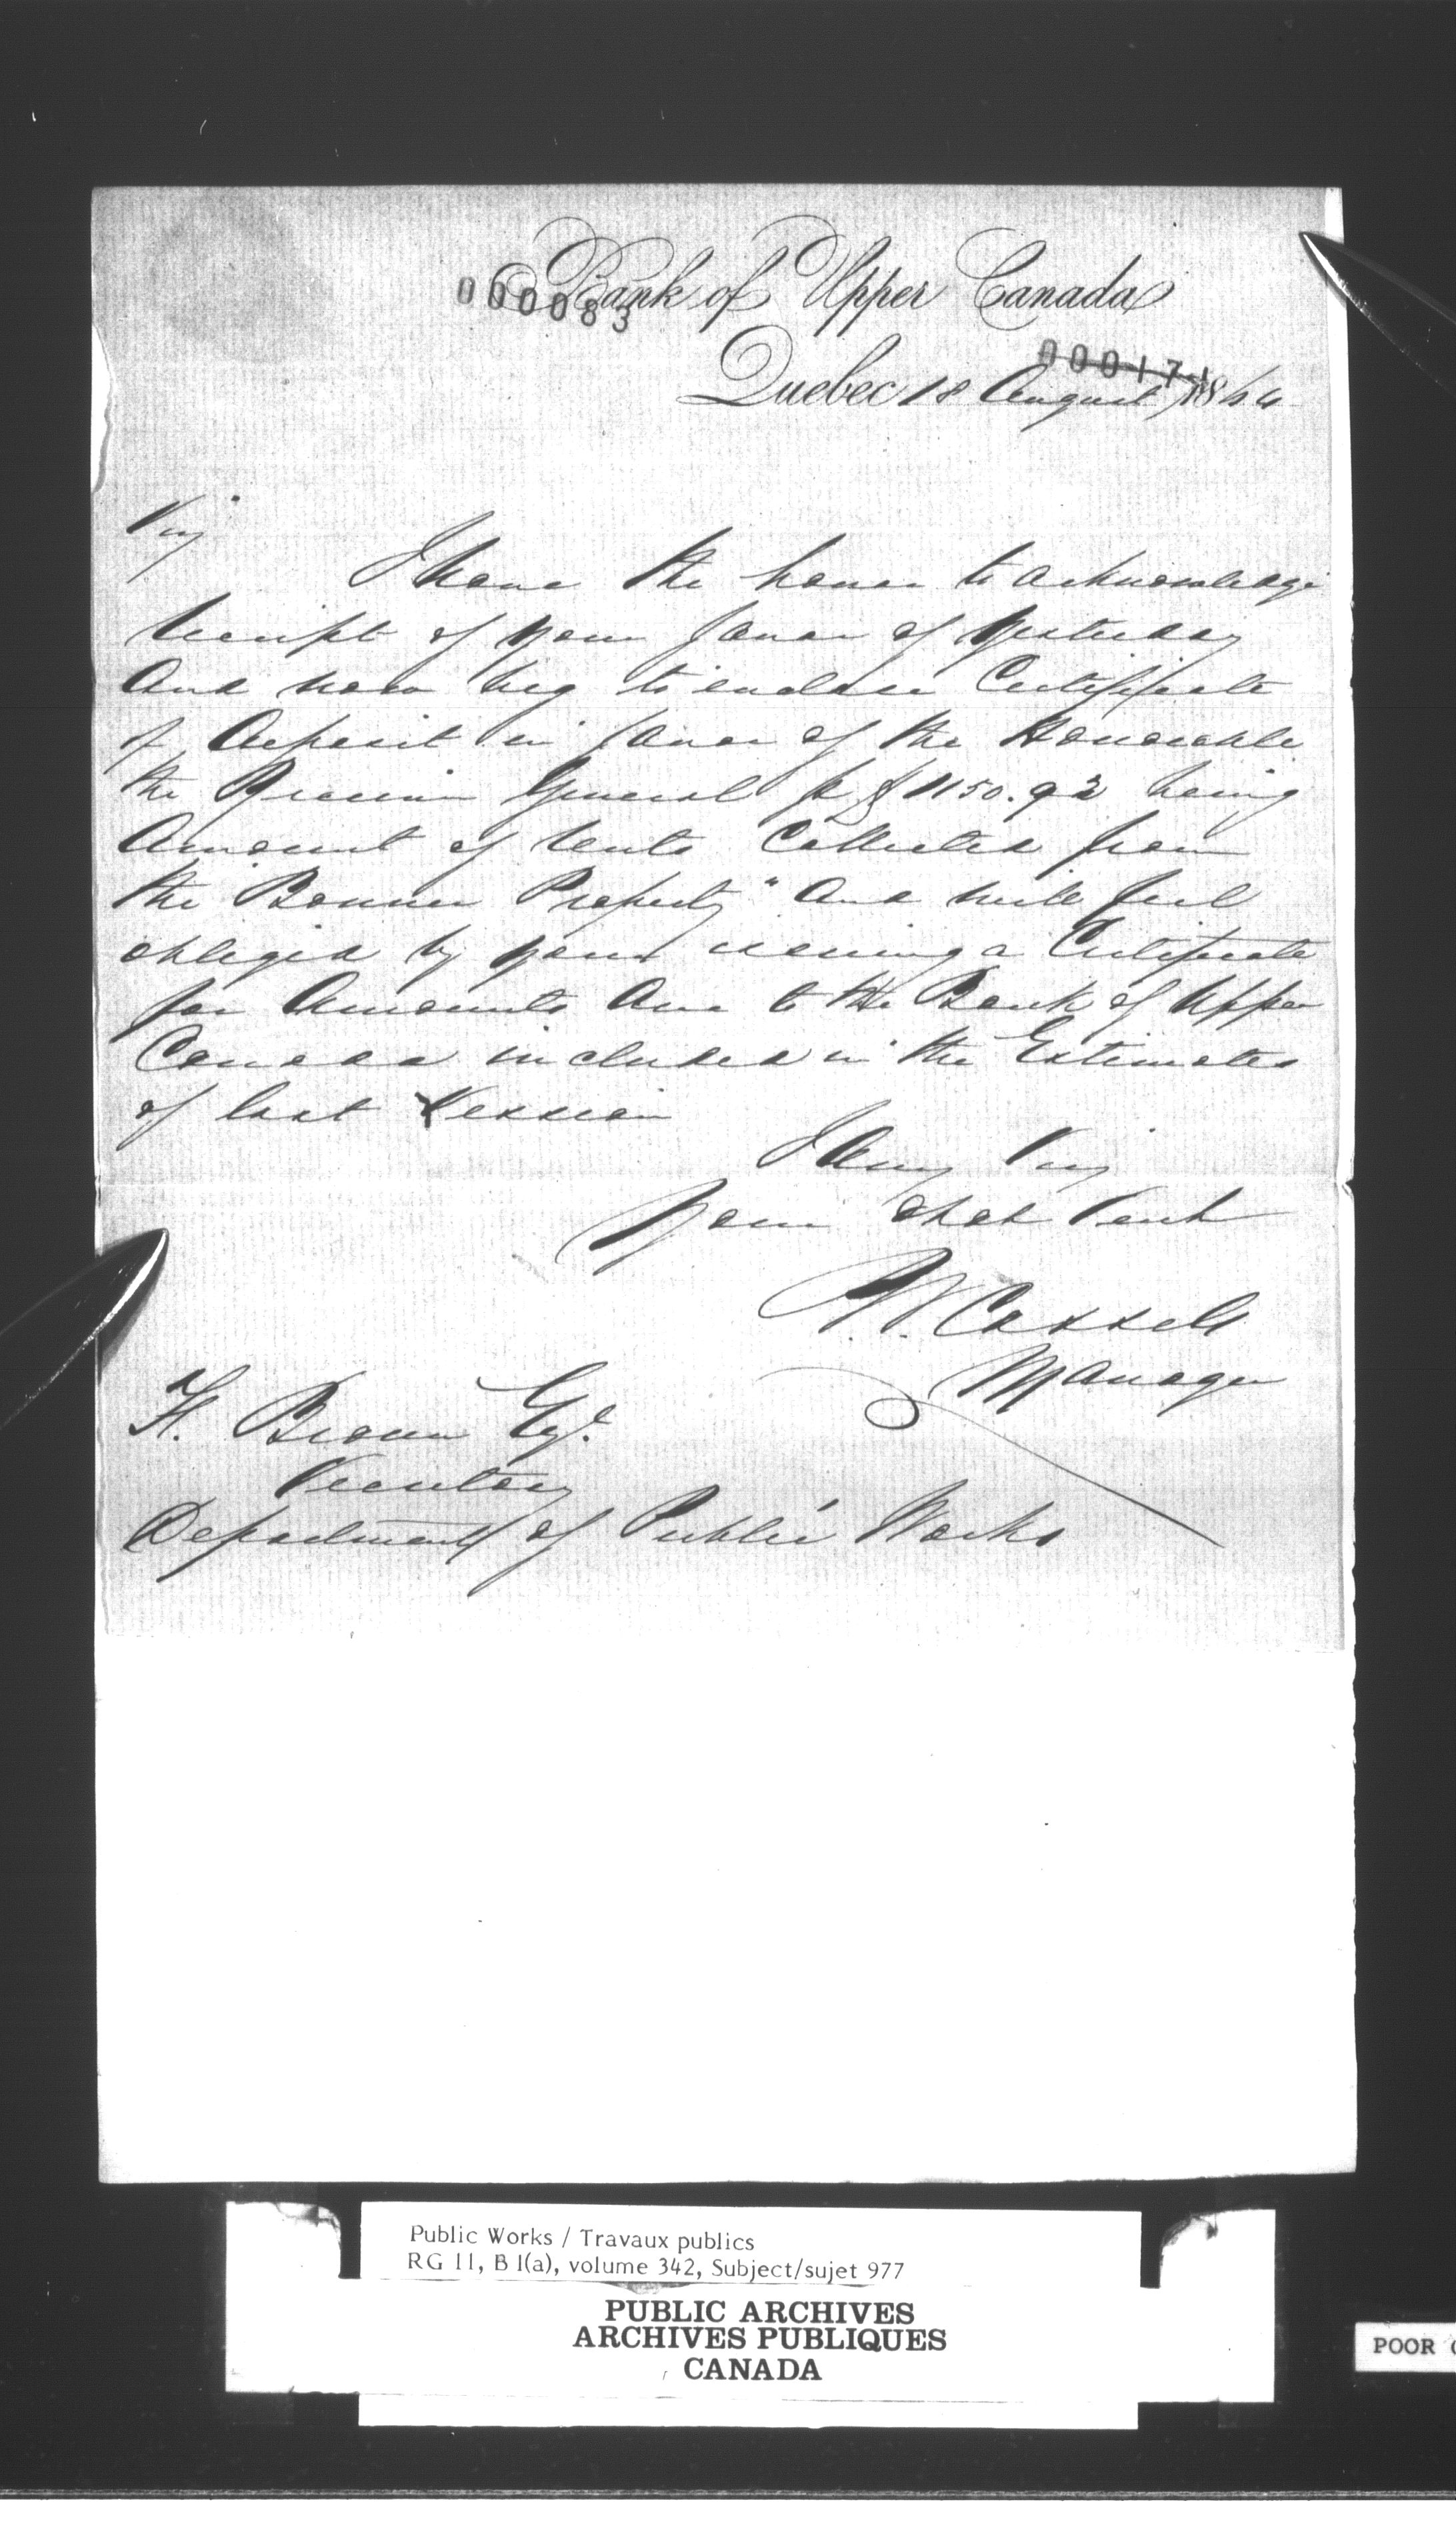 Bank of Upper Canada
000083
000171
Quebec 18 August 1864
Sir
I have the honor to acknowledge
receipt of your favor of yesterday
and now beg to enclose Certificate
of Deposit in favor of the Honorable
the Receiver General for $1150.93 being
Amount of rents Collected from
the Bonner Property" and will feel
obliged by your issuing a Certificate
for Amounts due to the Bank of Upper
Canada included in the Estimates
of last Session
I am Sir
Your obdt Servt
Cassels
Manager
F. Braun Esqr.
Secretary
Department of Public Works
Public Works / Travaux publics
RG 11, B 1(a), volume 342, Subject/sujet 977
PUBLIC ARCHIVES
ARCHIVES PUBLIQUES
CANADA
POOR